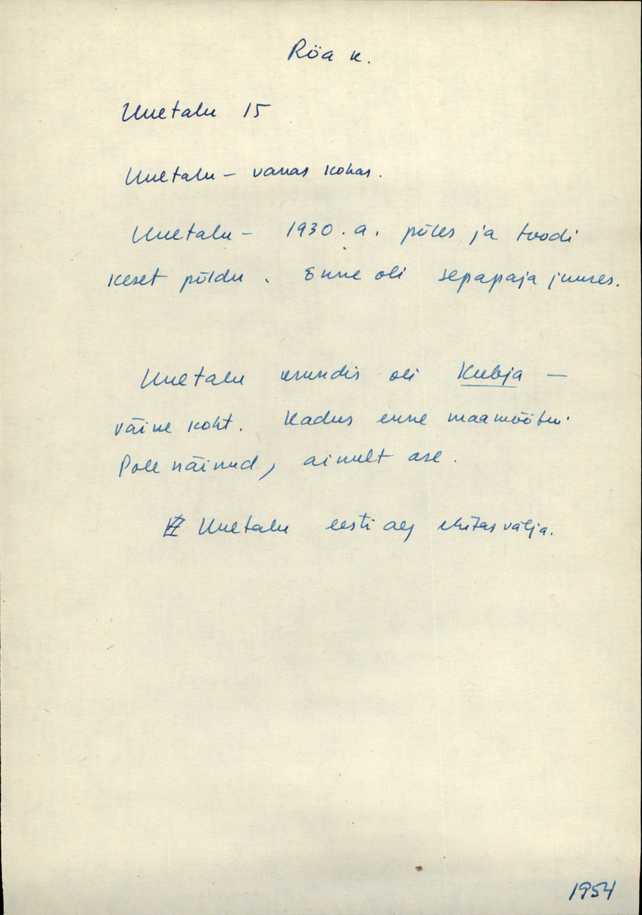 Röa k.
Uuetalu 15
Uuetalu – vanas kohas.
Uuetalu – 1930. a. põles ja toodi
keset põldu. Enne oli sepapaja juures.
Uuetalu krundis oli Kubja –
väine koht. Kadus enne maamõõtu.
Pole näinud, ainult ase.
Uuetalu eesti aeg ehitas välja.
1954